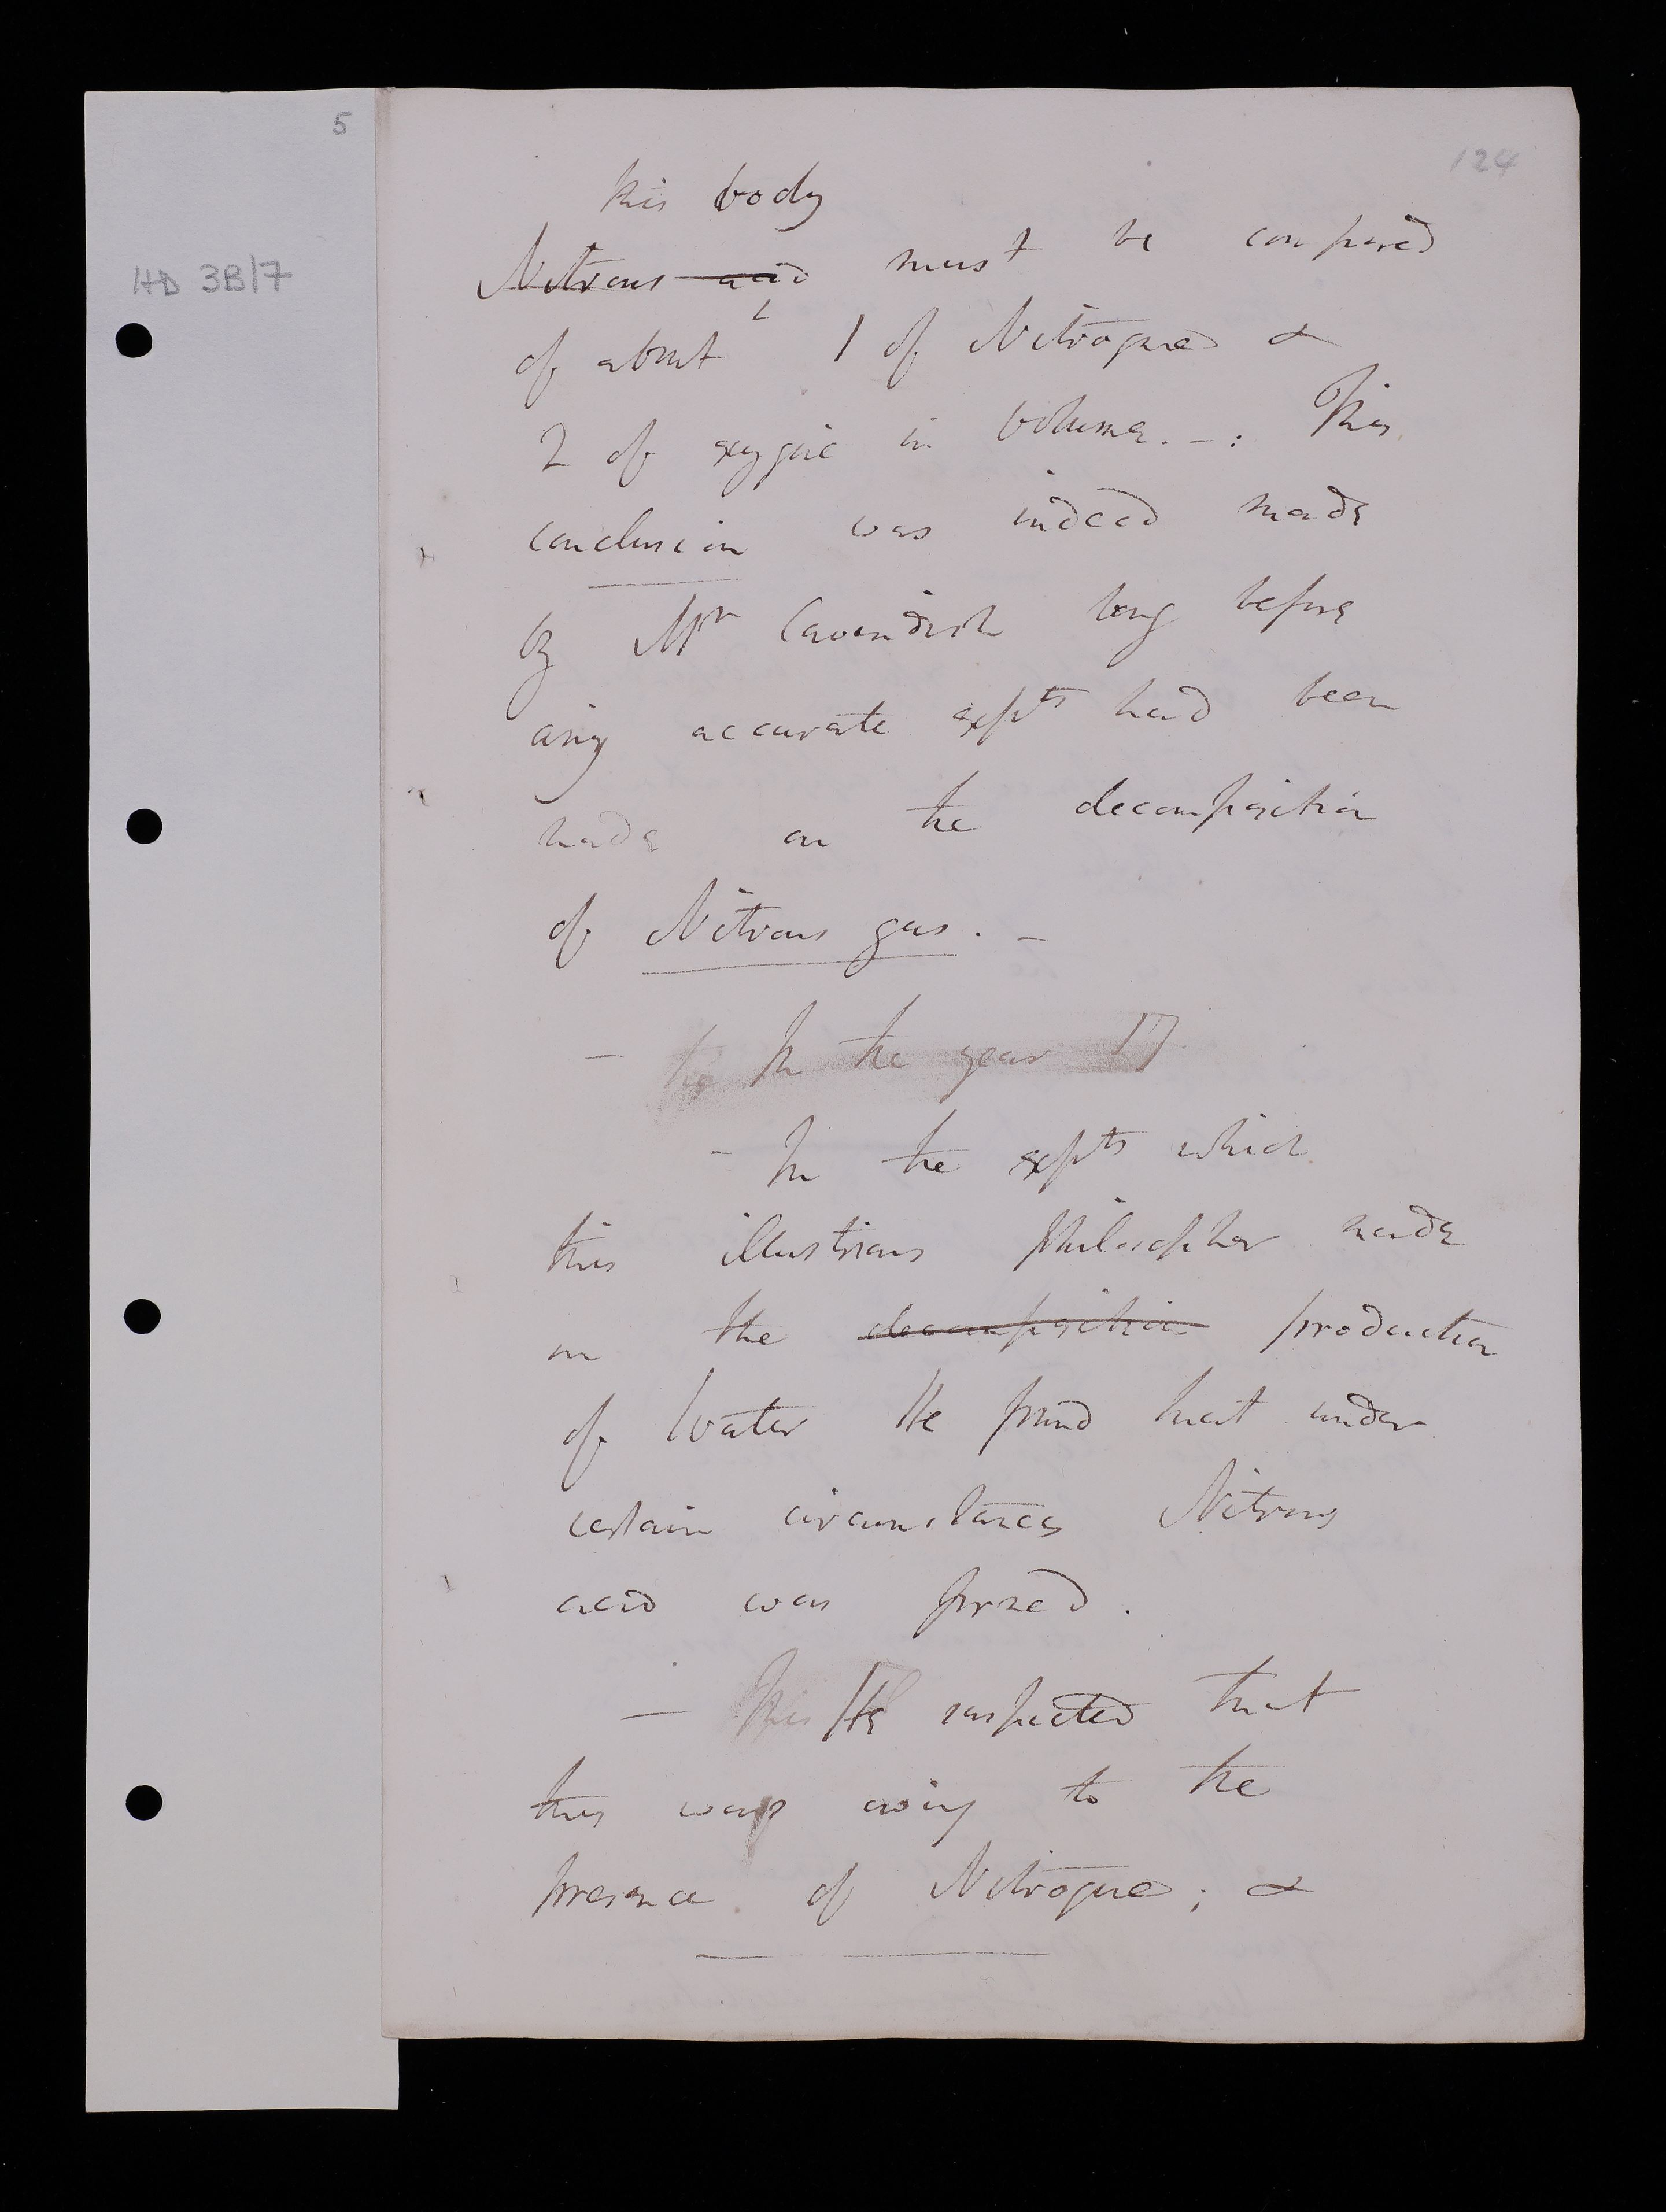 5
124
HD 3B/7
this body
Nitrous acid must be composed
of about 1 of Nitrogene &
2 of oxygene in volume. -: This
conclusion was indeed made
by Mr Cavendish long before
any accurate expts had been
made on the decomposition
of Nitrous gas. -
- In the year 17
- In the expts which
this illustrious philosopher made
on the decomposition production
of Water He found that under
certain circumstances Nitrous
acid was formed.
- This He suspected that
this was owing to the
presence of Nitrogene; &